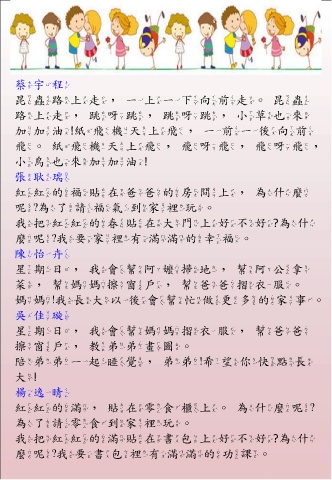 蔡宇程
昆蟲路上走，一上一下向前走。昆蟲
路上走，跳呀跳，跳呀跳，小草也來
加加油!紙飛機天上飛，一前一後向前
飛。紙飛機天上飛，飛呀飛，飛呀飛，
小鳥也來加加油!
張耿瑞
紅紅的福貼在爸爸的房間上，為什麼
呢?為了請福氣到家裡玩。
我把紅紅的春貼在大門上好不好?為什
麼呢?我要家裡有滿滿的幸福。
陳怡卉
星期日，我會幫阿嬤掃地，幫阿公拿
菜，幫媽媽擦窗戶，幫爸爸摺衣服。
媽媽!我長大以後會幫忙做更多的家事。
吳佳璇
星期日，我會幫媽媽摺衣服，幫爸爸
擦窗戶，教弟弟畫圖。
陪弟弟一起睡覺，弟弟!希望你快點長
大!
楊逸晴
紅紅的滿，貼在零食櫃上。為什麼呢?
為了請零食到家裡玩。
我把紅紅的滿貼在書包上好不好?為什
麼呢?我要書包裡有滿滿的功課。